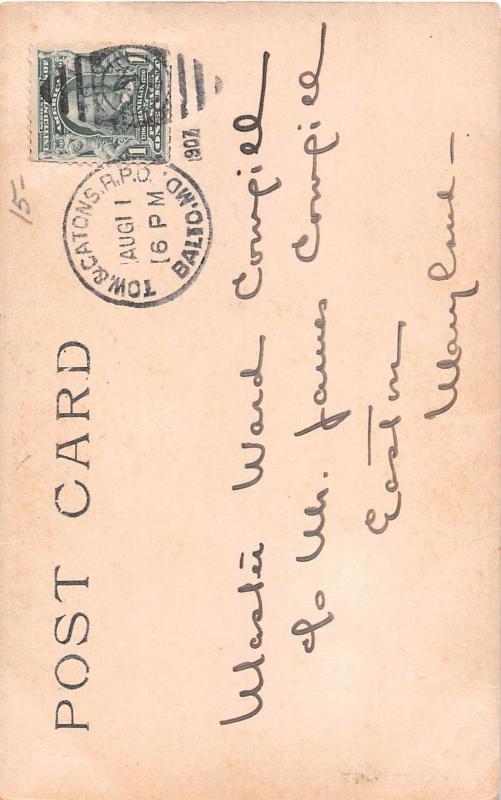 POST CARD
TOW. & CATONS. R.P.O.
AUG 11
6 PM
BALTO. MD.
1907
15-
Master Ward Cowgill
c/o Mr. James Cowgill
Easton
Maryland -